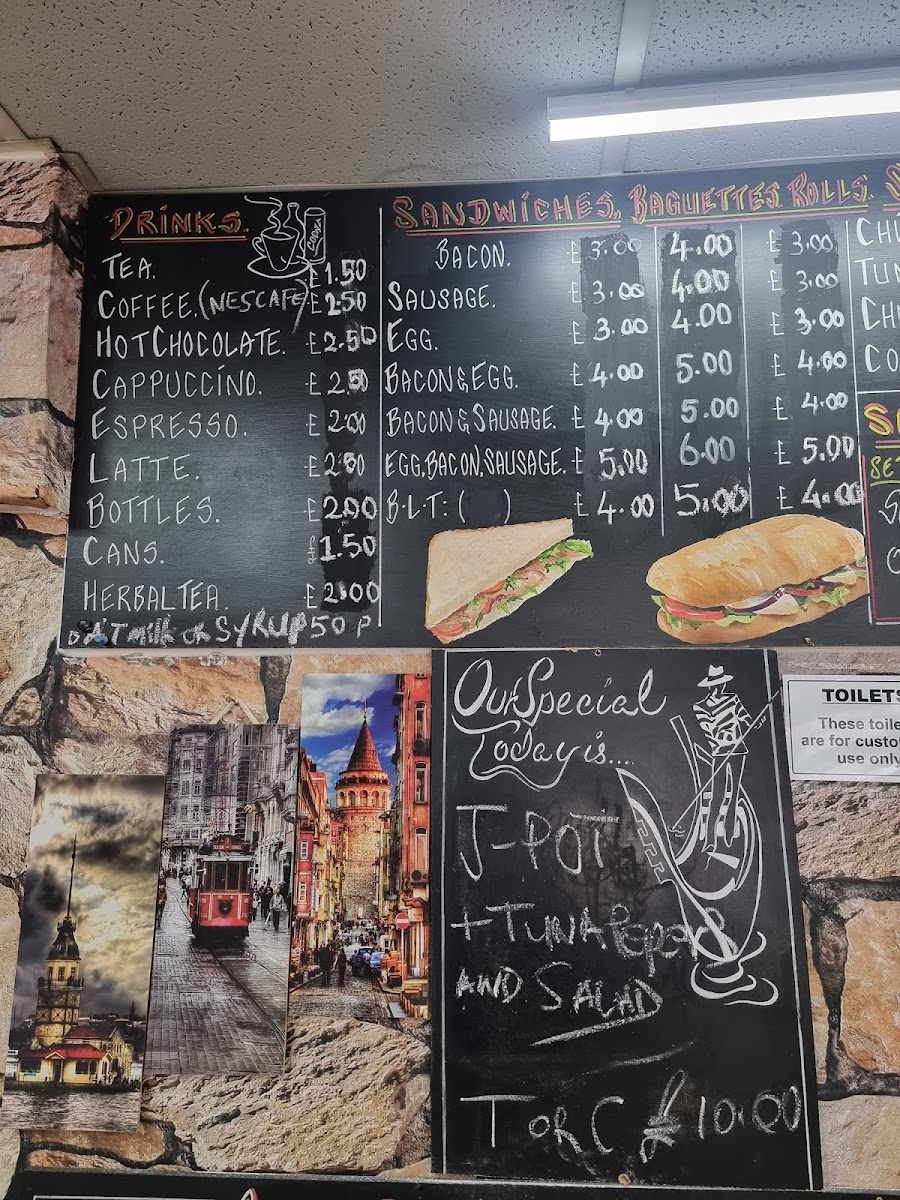 DRINKS.
TEA. £1.50
COFFEE.(NESCAFE) £2.50
HOT CHOCOLATE. £2.50
CAPPUCCINO. £2.50
ESPRESSO. £2.00
LATTE. £2.50
BOTTLES. £2.00
CANS. £1.50
HERBAL TEA. £2.00
OAT milk or SYRUP 50 P
SANDWICHES, BAGUETTES, ROLLS.
BACON. £3.00 4.00 £3.00
SAUSAGE. £3.00 4.00 £3.00
EGG. £3.00 4.00 £3.00
BACON & EGG. £4.00 5.00 £4.00
BACON & SAUSAGE. £4.00 5.00 £4.00
EGG, BACON, SAUSAGE. £5.00 6.00 £5.00
B.L.T: ( ) £4.00 5.00 £4.00
Our Special
Today is....
J-POT
+ TUNA
AND SALAD
T or C £10.00
TOILETS
These
are for
use only